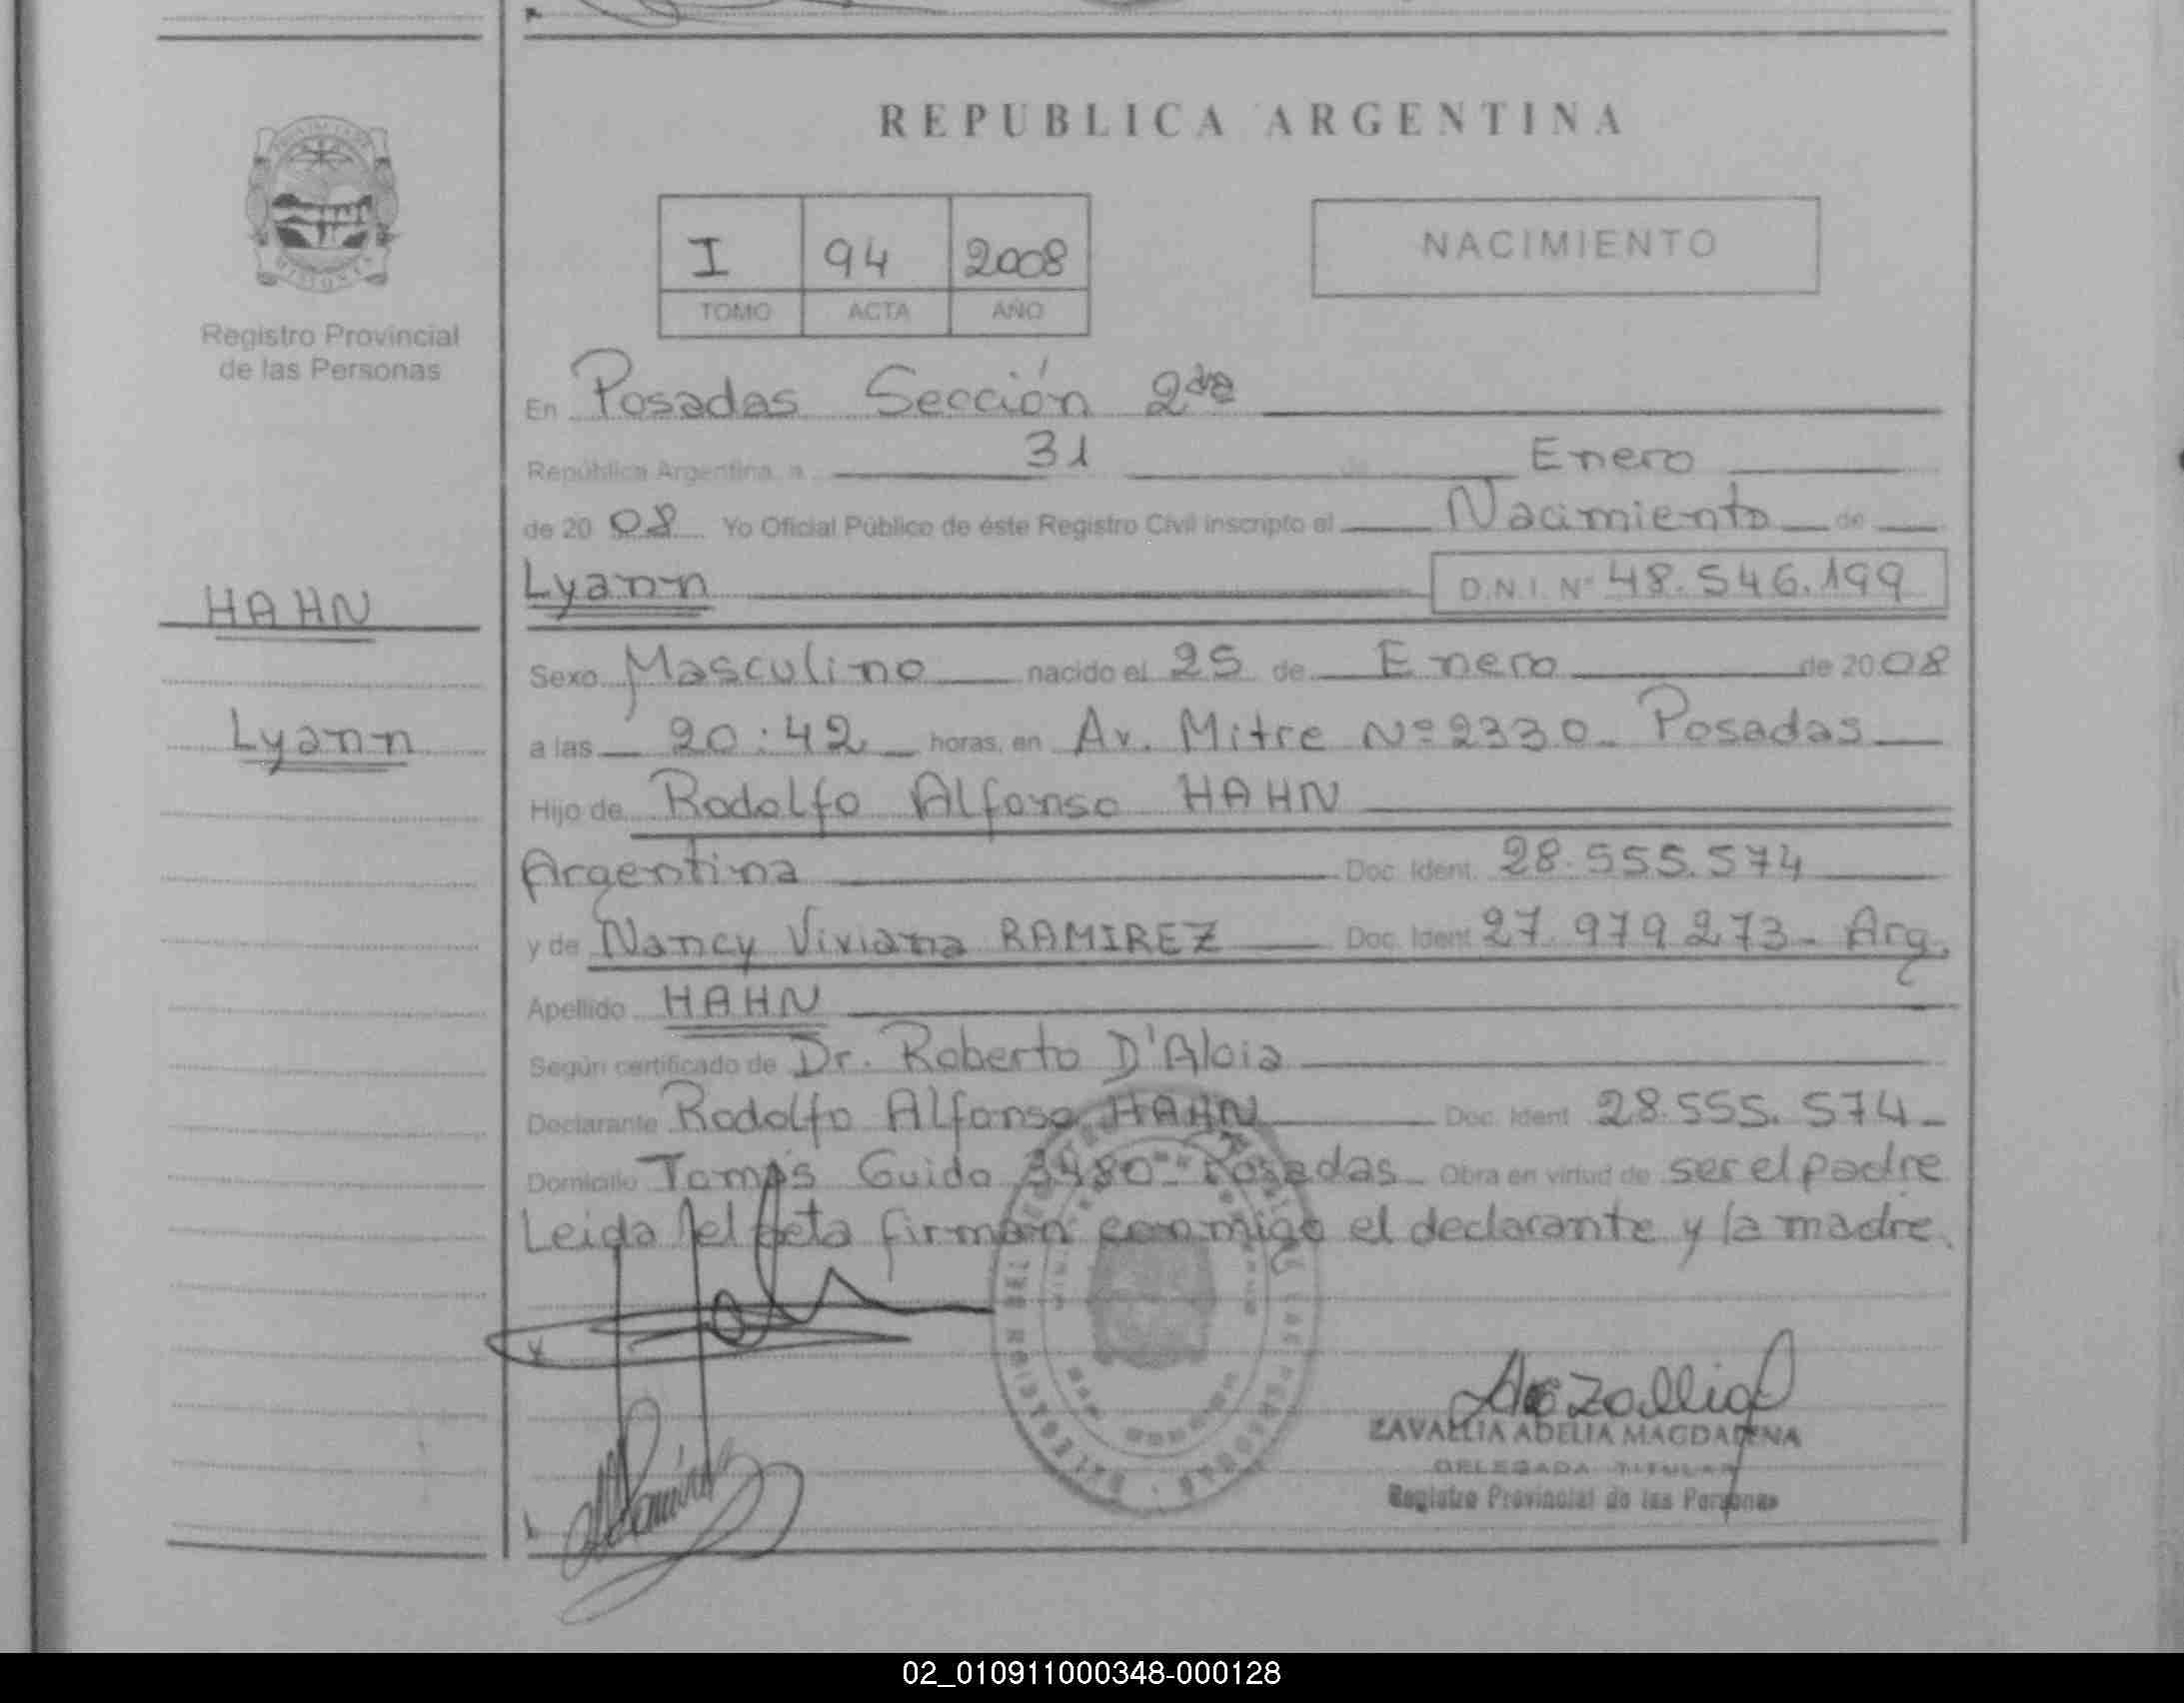 REPUBLICA ARGENTINA
I 94 2008
TOMO ACTA AÑO
NACIMIENTO
Registro Provincial
de las Personas
En Posadas Sección 2da
República Argentina, a 31 de Enero
de 20 08 Yo Oficial Público de éste Registro Civil inscripto el Nacimiento de
Lyann D.N.I. Nº 48.546.199
HAHN
Lyann
Sexo Masculino nacido el 25 de Enero de 20 08
a las 20:42 horas, en Av. Mitre Nº 2330 - Posadas
Hijo de Rodolfo Alfonso HAHN
Argentina Doc. Ident. 28.555.574
y de Nancy Viviana RAMIREZ Doc. Ident 27.979.273 - Arg.
Apellido HAHN
Según certificado de Dr. Roberto D'Aloia
Declarante Rodolfo Alfonso HAHN Doc. Ident 28.555.574 -
Domicilio Tomás Guido 3480 - Posadas - Obra en virtud de ser el padre
Leida el acta firman conmigo el declarante y la madre.
ZAVALLIA ADELIA MAGDALENA
DELEGADA TITULAR
Registro Provincial de las Personas
02_010911000348-000128